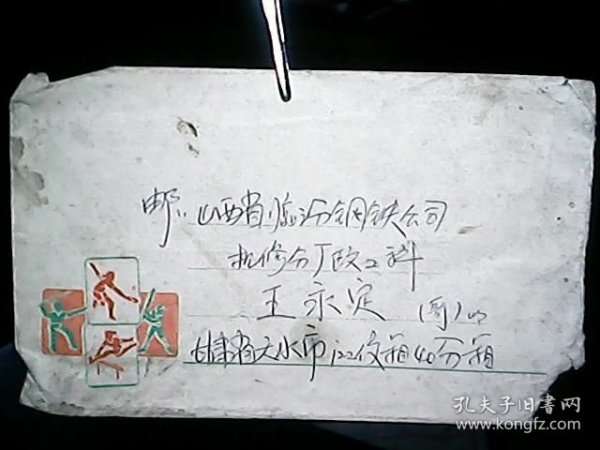 邮: 山西省临汾钢铁公司
机修分厂政工科
王永定 (哥)收
甘肃省天水市122信箱40分箱
孔夫子旧书网
www.kongfz.com